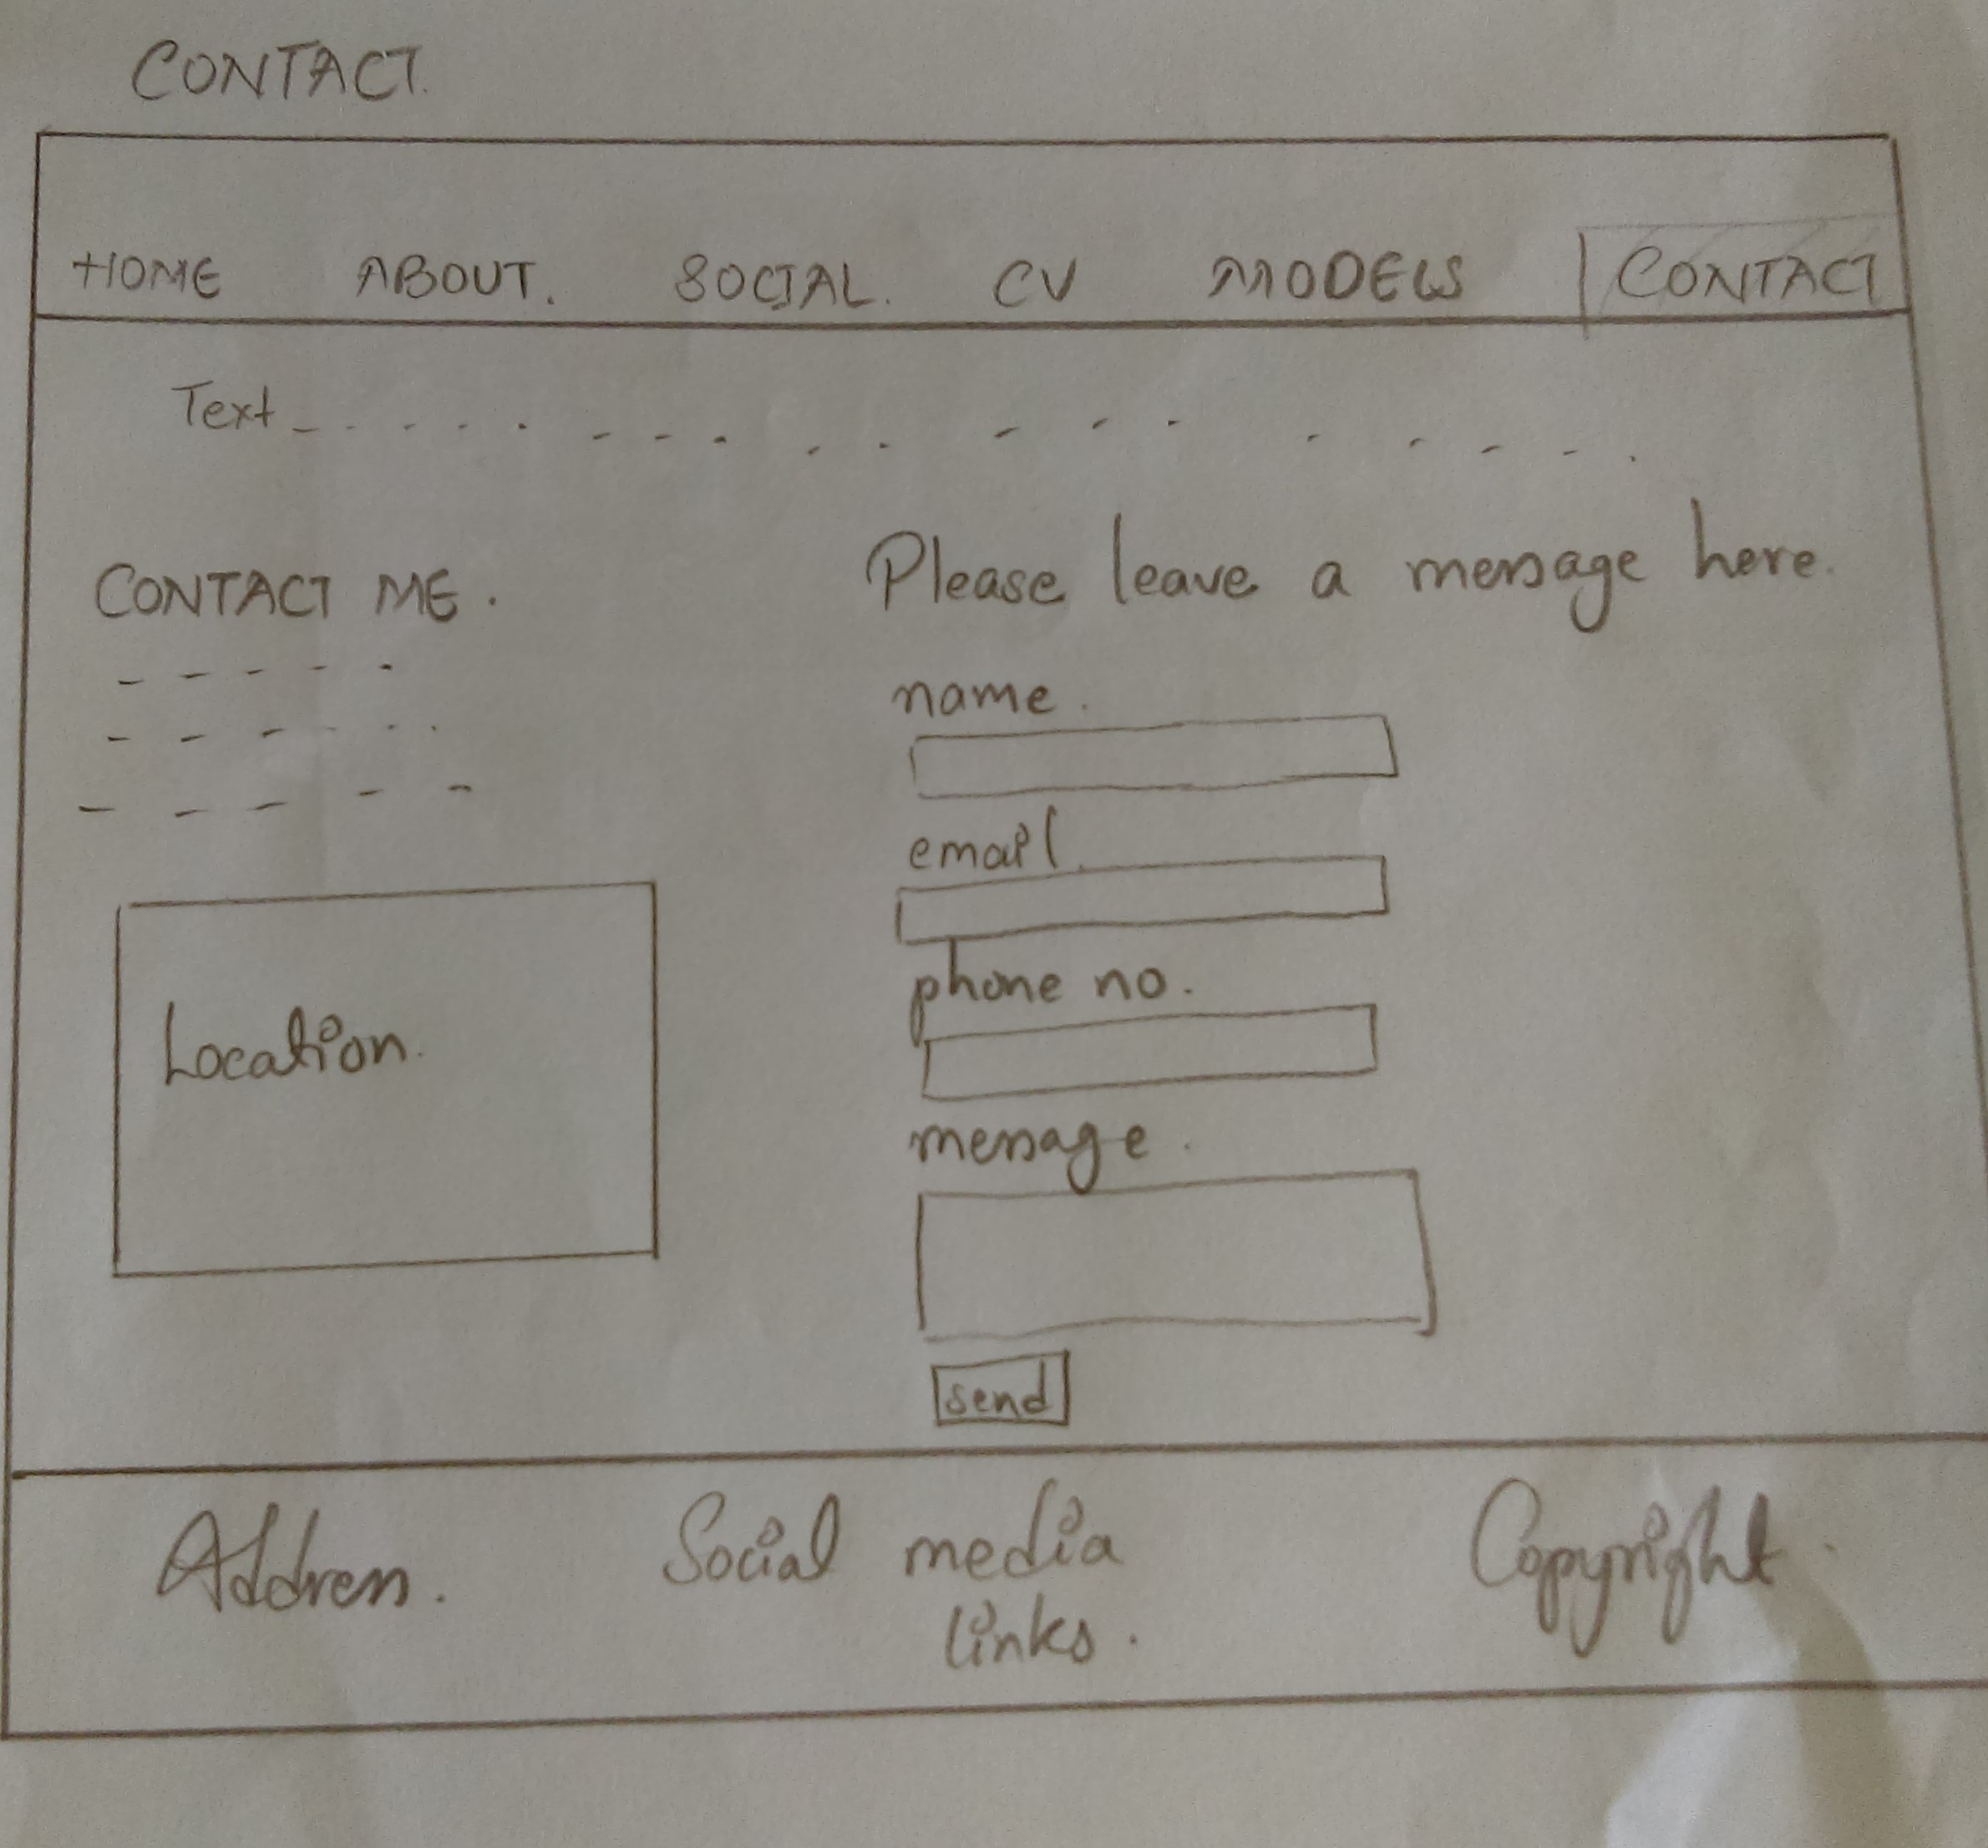 CONTACT.
HOME ABOUT. SOCIAL. CV MODELS CONTACT
Text
CONTACT ME.
Please leave a message here.
name.
email.
phone no.
message.
send
Location.
Address. Social media links. Copyright.